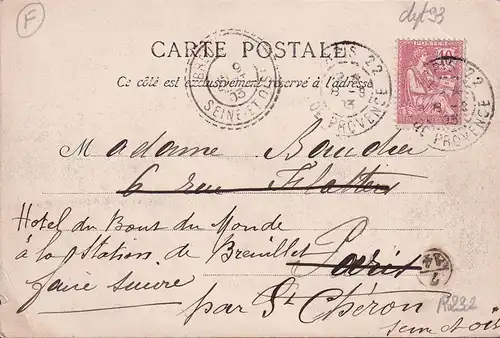 F
dept 93
CARTE POSTALE
Ce côté est exclusivement réservé à l'adresse
BRE
9
03
SEINE-ET-OISE
PARIS 22
8
03
R. DE PROVENCE
PARIS 22
8
03
R. DE PROVENCE
Madame Baudier
6 rue Flatters
Hotel du Bout du Monde
à la Station de Breuillet Paris
faire suivre
par St Chéron
Seine et Oise
R232